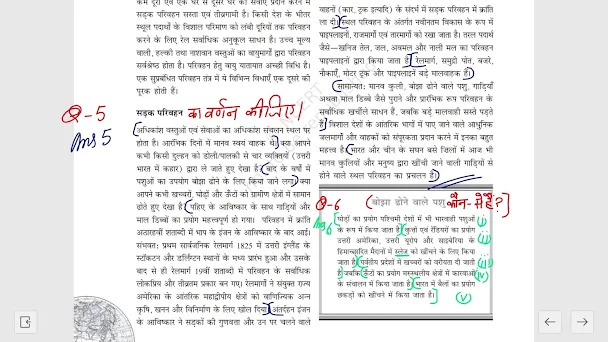 कम दूरी एवं एक घर से दूसरे घर की सेवाएँ प्रदान करने में
सड़क परिवहन सस्ता एवं तीव्रगामी है। किसी देश के भीतर
स्थूल पदार्थों के विशाल परिमाण को लंबी दूरियों तक परिवहन
करने के लिए रेल सर्वाधिक अनुकूल साधन है। उच्च मूल्य
वाली, हल्की तथा नाशवान वस्तुओं का वायुमार्गों द्वारा परिवहन
सर्वश्रेष्ठ होता है। परिवहन हेतु वायु यातायात अच्छी विधि है।
एक सुप्रबंधित परिवहन तंत्र में ये विभिन्न विधाएँ एक दूसरे की
पूरक होती हैं।
Q-5 सड़क परिवहन का वर्णन कीजिए।
Ans 5 अधिकांश वस्तुओं एवं सेवाओं का अधिकांश संचलन स्थल पर
होता है। आरंभिक दिनों में मानव स्वयं वाहक थे। क्या आपने
कभी किसी दुल्हन को डोली/पालकी से चार व्यक्तियों (उत्तरी
भारत में कहार) द्वारा ले जाते हुए देखा है। बाद के वर्षों में
पशुओं का उपयोग बोझा ढोने के लिए किया जाने लगा। क्या
आपने कभी खच्चरों, घोड़ों और ऊँटों को ग्रामीण क्षेत्रों में सामान
ढोते हुए देखा है? पहिए के आविष्कार के साथ गाड़ियों और
माल डिब्बों का प्रयोग महत्त्वपूर्ण हो गया। परिवहन में क्रांति
अठारहवीं शताब्दी में भाप के इंजन के आविष्कार के बाद आई।
संभवत: प्रथम सार्वजनिक रेलमार्ग 1825 में उत्तरी इंग्लैंड के
स्टॉकटन और डर्लिंगटन स्थानों के मध्य प्रारंभ हुआ और उसके
बाद से ही रेलमार्ग 19वीं शताब्दी में परिवहन के सर्वाधिक
लोकप्रिय और तीव्रतम प्रकार बन गए। रेलमार्गों ने संयुक्त राज्य
अमेरिका के आंतरिक महाद्वीपीय क्षेत्रों को वाणिज्यिक अन्न
कृषि, खनन और विनिर्माण के लिए खोल दिया। अंतर्दहन इंजन
के आविष्कार ने सड़कों की गुणवत्ता और उन पर चलने वाले
वाहनों (कार, ट्रक इत्यादि) के संदर्भ में सड़क परिवहन में क्रांति
ला दी। स्थल परिवहन के अंतर्गत नवीनतम विकास के रूप में
पाइपलाइनों, राजमार्गों एवं तारमार्गों को रखा जाता है। तरल पदार्थ
जैसे—खनिज तेल, जल, अवमल और नाली मल का परिवहन
पाइपलाइनों द्वारा किया जाता है। रेलमार्ग, समुद्री पोत, बजरे,
नौकाएँ, मोटर ट्रक और पाइपलाइनें बड़े मालवाहक हैं।
सामान्यत: मानव कुली, बोझा ढोने वाले पशु, गाड़ियाँ
अथवा माल डिब्बे जैसे पुराने और प्रारंभिक रूप परिवहन के
सर्वाधिक खर्चीले साधन हैं, जबकि बड़े मालवाही सस्ते पड़ते
हैं। विशाल देशों के आंतरिक भागों में पाए जाने वाले आधुनिक
जलमार्गों और वाहकों को संपूरकता प्रदान करने में इनका बहुत
महत्त्व है। भारत और चीन के सघन बसे जिलों में आज भी
मानव कुलियों और मनुष्य द्वारा खींची जाने वाली गाड़ियों से
होने वाले स्थल परिवहन का प्रचलन है।
Q-6 बोझा ढोने वाले पशु कौन-से हैं?
Ans 6 घोड़ों का प्रयोग पश्चिमी देशों में भी भारवाही पशुओं (i)
के रूप में किया जाता है। कुत्तों एवं रेंडियरों का प्रयोग
उत्तरी अमेरिका, उत्तरी यूरोप और साइबेरिया के (ii)
हिमाच्छादित मैदानों में स्लेज को खींचने के लिए किया
जाता है। पर्वतीय प्रदेशों में खच्चरों को वरीयता दी जाती (iii)
है जबकि ऊँटों का प्रयोग मरुस्थलीय क्षेत्रों में कारवाओं (iv)
के संचालन में किया जाता है। भारत में बैलों का प्रयोग
छकड़ों को खींचने में किया जाता है। (v)